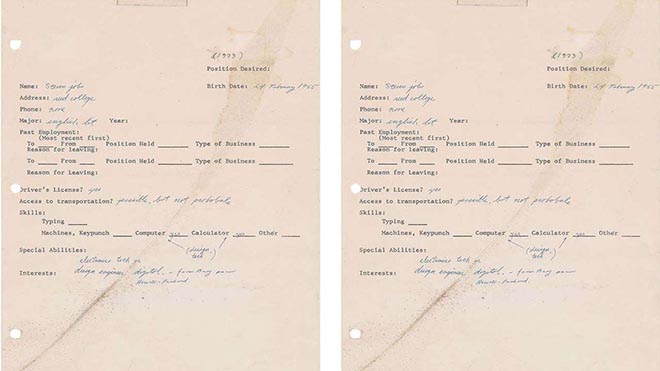 (1973)
Position Desired:
Name: Steven jobs Birth Date: 24 February 1955
Address: reed college
Phone: none
Major: english lit Year:
Past Employment:
(Most recent first)
To From Position Held Type of Business
Reason for leaving:
To From Position Held Type of Business
Reason for Leaving:
Driver's License? yes
Access to transportation? possible, but not probable
Skills:
Typing
Machines, Keypunch Computer yes Calculator yes Other
(design,
tech)
Special Abilities:
electronics tech or
Interests: design engineer. digital. - from Bay near
Hewitt-Packard
(1973)
Position Desired:
Name: Steven jobs Birth Date: 24 February 1955
Address: reed college
Phone: none
Major: english lit Year:
Past Employment:
(Most recent first)
To From Position Held Type of Business
Reason for leaving:
To From Position Held Type of Business
Reason for Leaving:
Driver's License? yes
Access to transportation? possible, but not probable
Skills:
Typing
Machines, Keypunch Computer yes Calculator yes Other
(design,
tech)
Special Abilities:
electronics tech or
Interests: design engineer. digital. - from Bay near
Hewitt-Packard